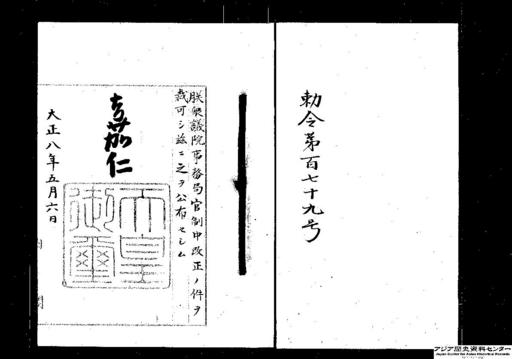 勅令第百七十九号
朕衆議院事務局官制中改正ノ件ヲ
裁可シ茲ニ之ヲ公布セシム
嘉仁
天皇御璽
大正八年五月六日
内閣
アジア歴史資料センター
Japan Center for Asian Historical Records